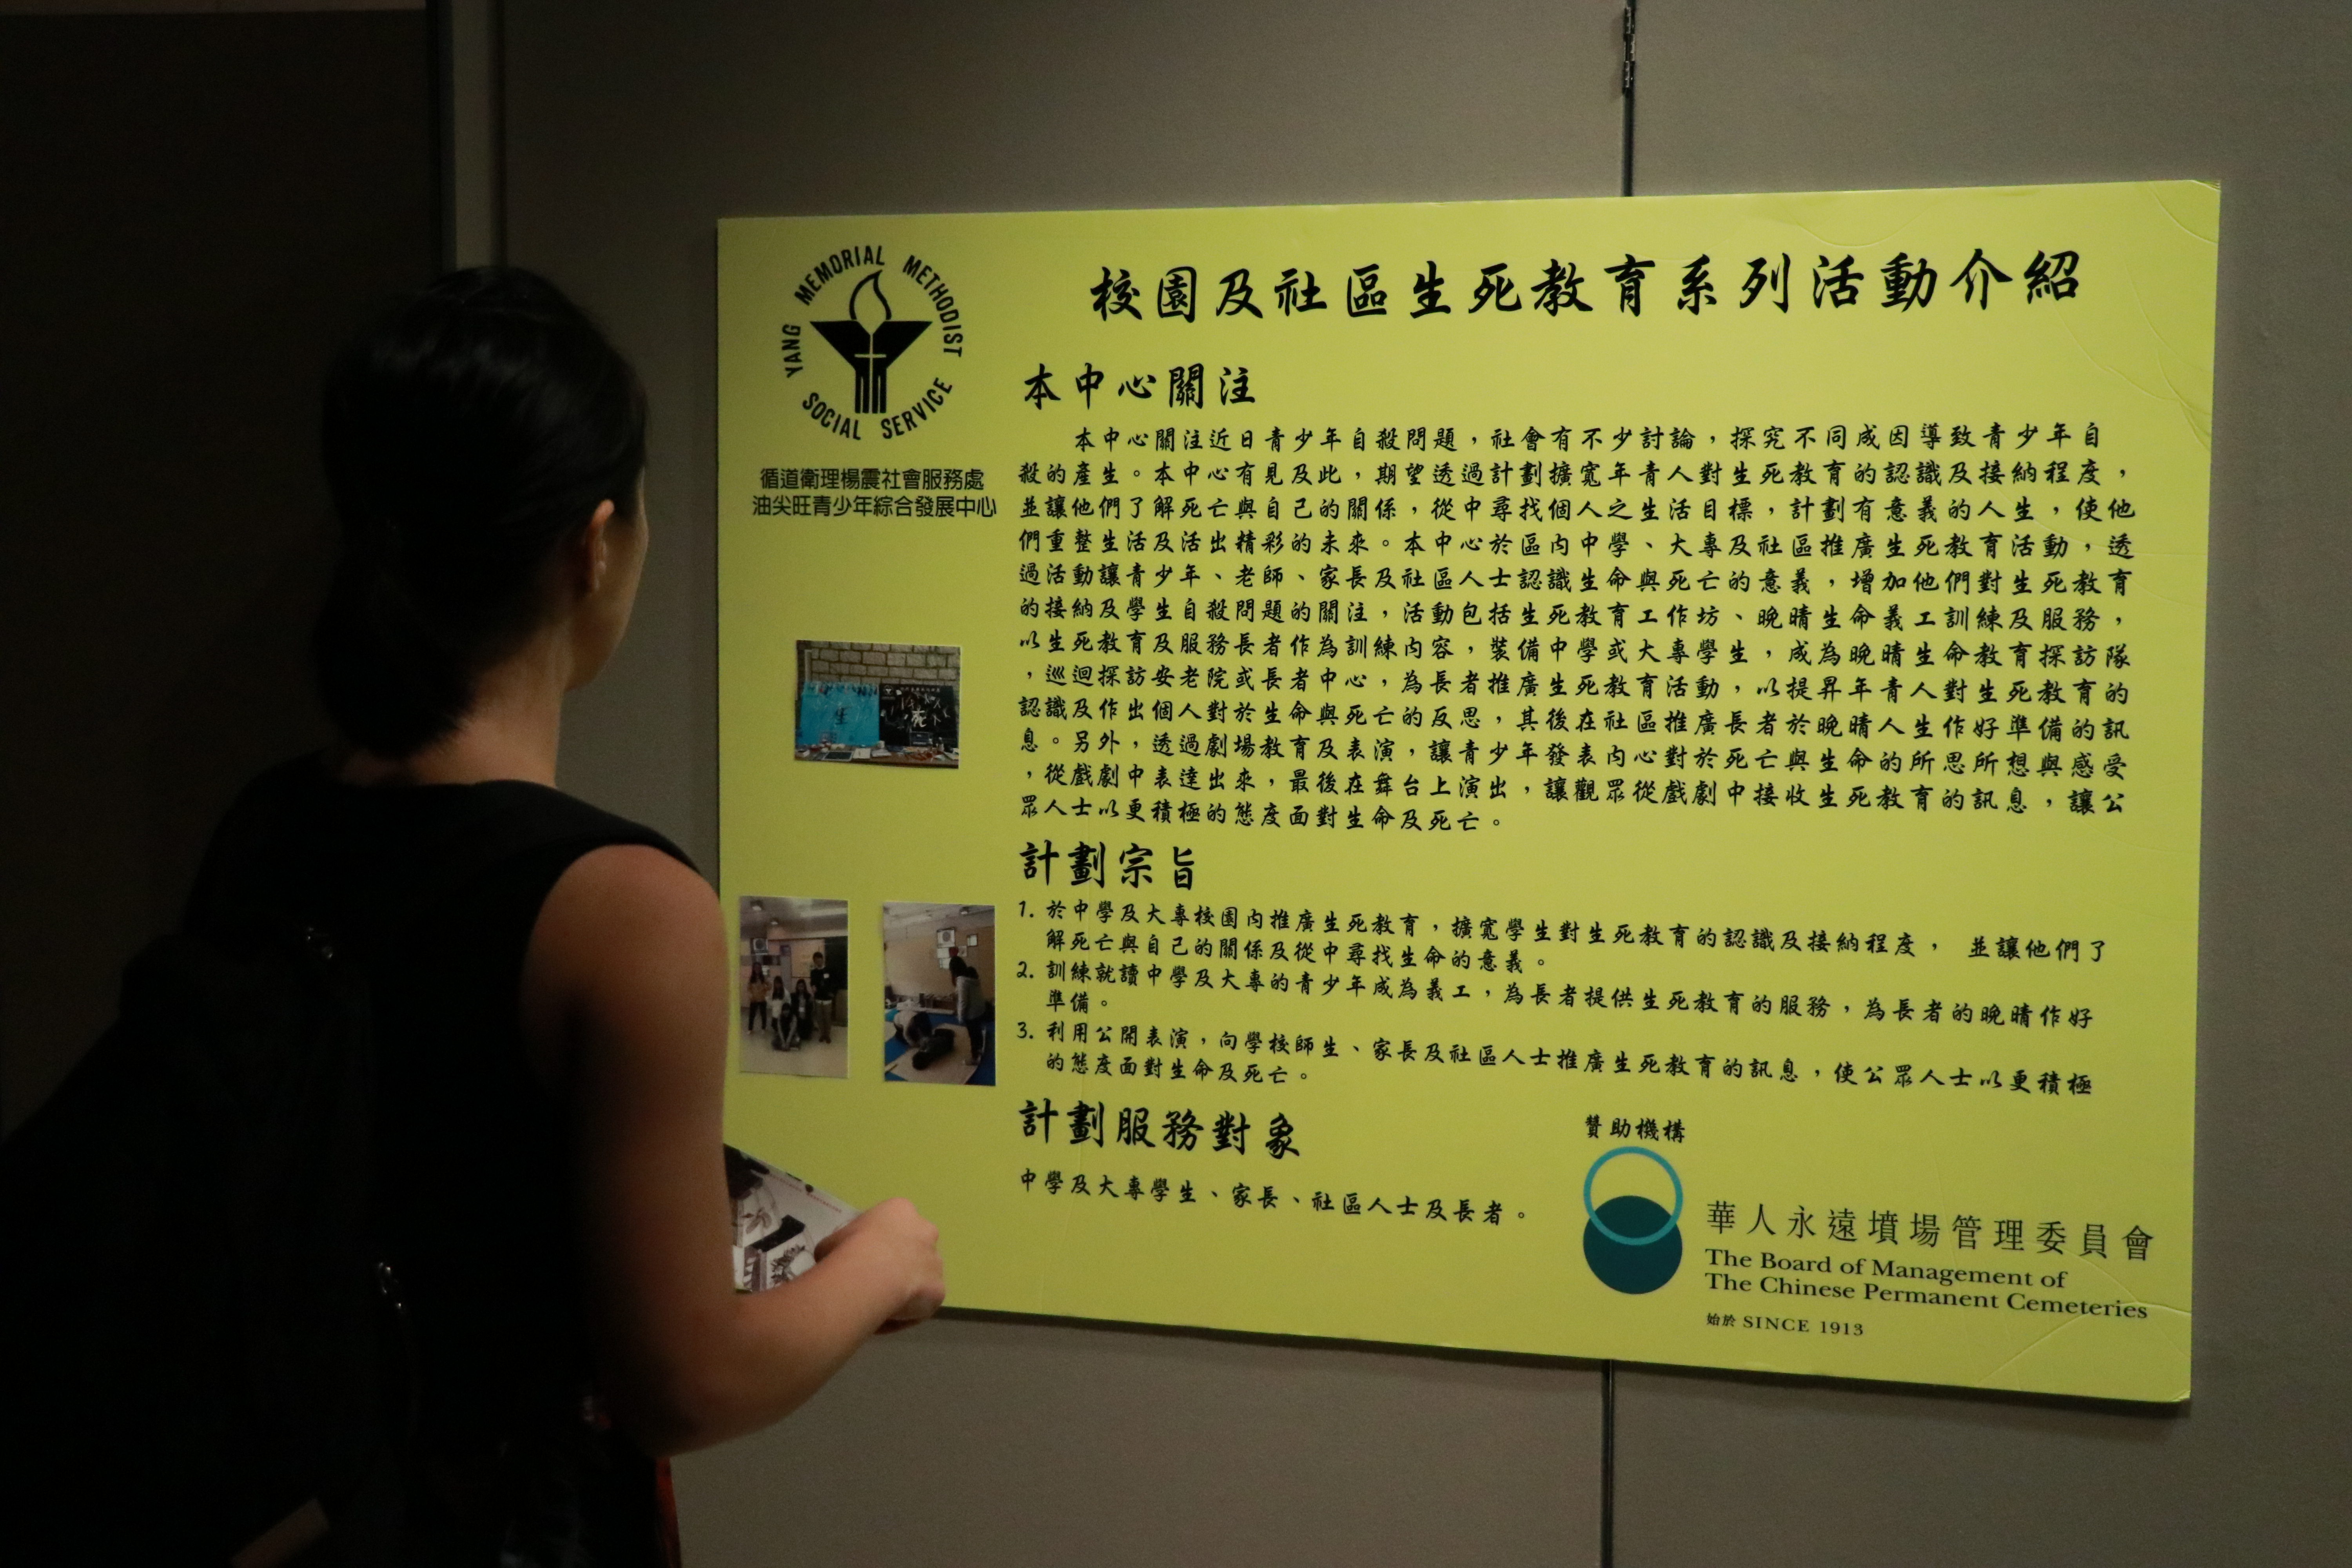 YANG MEMORIAL METHODIST
SOCIAL SERVICE
循道衛理楊震社會服務處
油尖旺青少年綜合發展中心
校園及社區生死教育系列活動介紹
本中心關注
本中心關注近日青少年自殺問題，社會有不少討論，探究不同成因導致青少年自
殺的產生。本中心有見及此，期望透過計劃擴寬年青人對生死教育的認識及接納程度，
並讓他們了解死亡與自己的關係，從中尋找個人之生活目標，計劃有意義的人生，使他
們重整生活及活出精彩的未來。本中心於區內中學、大專及社區推廣生死教育活動，透
過活動讓青少年、老師、家長及社區人士認識生命與死亡的意義，增加他們對生死教育
的接納及學生自殺問題的關注，活動包括生死教育工作坊、晚晴生命義工訓練及服務，
以生死教育及服務長者作為訓練內容，裝備中學或大專學生，成為晚晴生命教育探訪隊
，巡迴探訪安老院或長者中心，為長者推廣生死教育活動，以提昇年青人對生死教育的
認識及作出個人對於生命與死亡的反思，其後在社區推廣長者於晚晴人生作好準備的訊
息。另外，透過劇場教育及表演，讓青少年發表內心對於死亡與生命的所思所想與感受
，從戲劇中表達出來，最後在舞台上演出，讓觀眾從戲劇中接收生死教育的訊息，讓公
眾人士以更積極的態度面對生命及死亡。
計劃宗旨
1. 於中學及大專校園內推廣生死教育，擴寬學生對生死教育的認識及接納程度， 並讓他們了
解死亡與自己的關係及從中尋找生命的意義。
2. 訓練就讀中學及大專的青少年成為義工，為長者提供生死教育的服務，為長者的晚晴作好
準備。
3. 利用公開表演，向學校師生、家長及社區人士推廣生死教育的訊息，使公眾人士以更積極
的態度面對生命及死亡。
計劃服務對象
中學及大專學生、家長、社區人士及長者。
贊助機構
華人永遠墳場管理委員會
The Board of Management of
The Chinese Permanent Cemeteries
始於 SINCE 1913
生
死